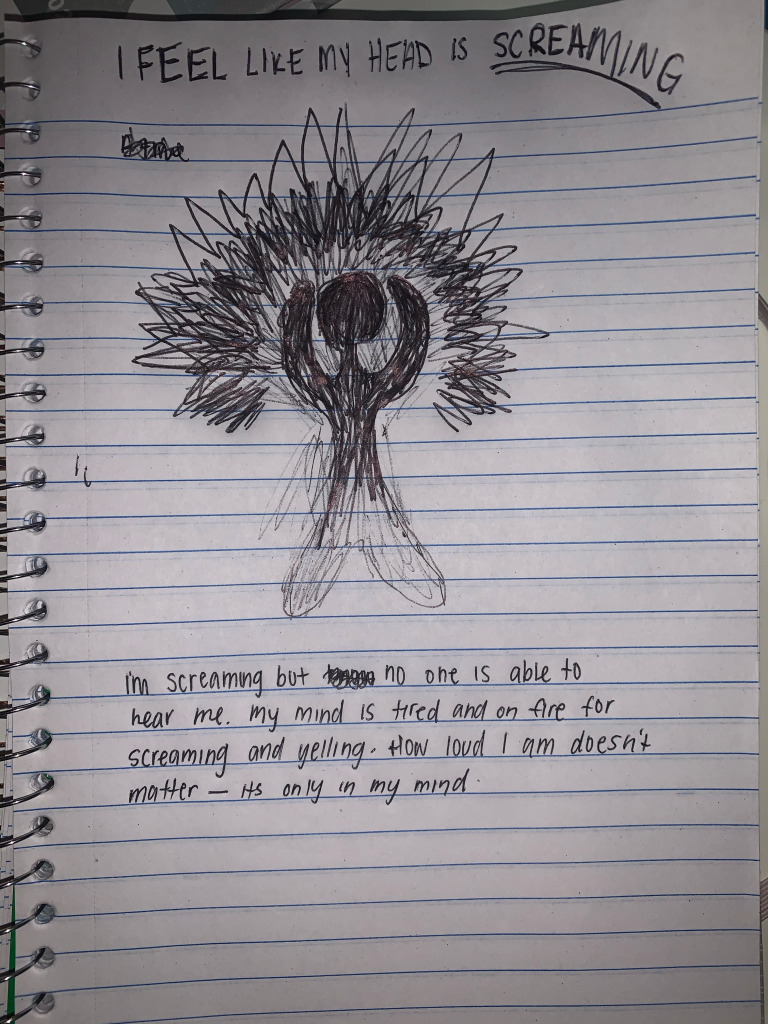 I FEEL LIKE MY HEAD IS SCREAMING
I'm screaming but no one is able to
hear me. My mind is tired and on fire for
screaming and yelling. How loud I am doesn't
matter — its only in my mind.